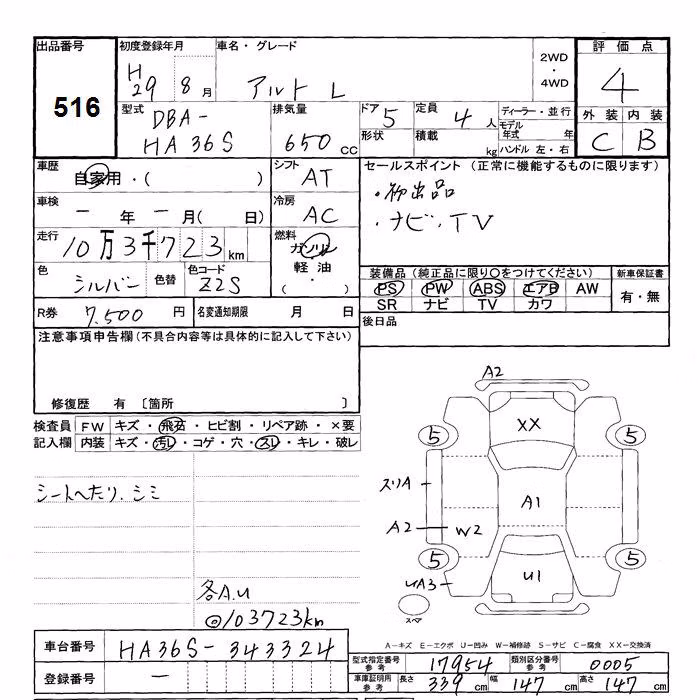 出品番号
516
初度登録年月
H29 8月
車名・グレード
アルト L
2WD
・
4WD
評価点
4
外装 内装
C B
型式
DBA-
HA36S
排気量
650 cc
ドア 5
形状
定員 4 人
積載 kg
ディーラー・並行
モデル年式 年
ハンドル 左・右
車歴
自家用・( )
シフト
AT
車検
ー 年 ー 月( 日)
冷房
AC
走行
10万3千723 km
燃料
ガソリン
軽油
( ・ )
色
シルバー
色替
色コード
Z2S
セールスポイント(正常に機能するものに限ります)
・初出品
・ナビ・TV
装備品(純正品に限り○をつけてください)
PS PW ABS エアB AW
SR ナビ TV カワ
新車保証書
有・無
R券 7,500 円
名変通知期限 月 日
後日品
注意事項申告欄(不具合内容等は具体的に記入して下さい)
修復歴 有 〔箇所 〕
検査員記入欄
FW キズ・飛石・ヒビ割・リペア跡・×要
内装 キズ・汚レ・コゲ・穴・スレ・キレ・破レ
シートへたり、シミ
各A.U
◎103723km
A2
XX
5
5
スリA
A1
A2
W2
5
5
UA3
U1
スペア
A－キズ E－エクボ U－凹み W－補修跡 S－サビ C－腐食 XX－交換済
車台番号 HA36S-343324
登録番号 ー
型式指定番号 参考 17954 類別区分番号 参考 0005
車庫証明用 参考 長さ 339 cm 幅 147 cm 高さ 147 cm